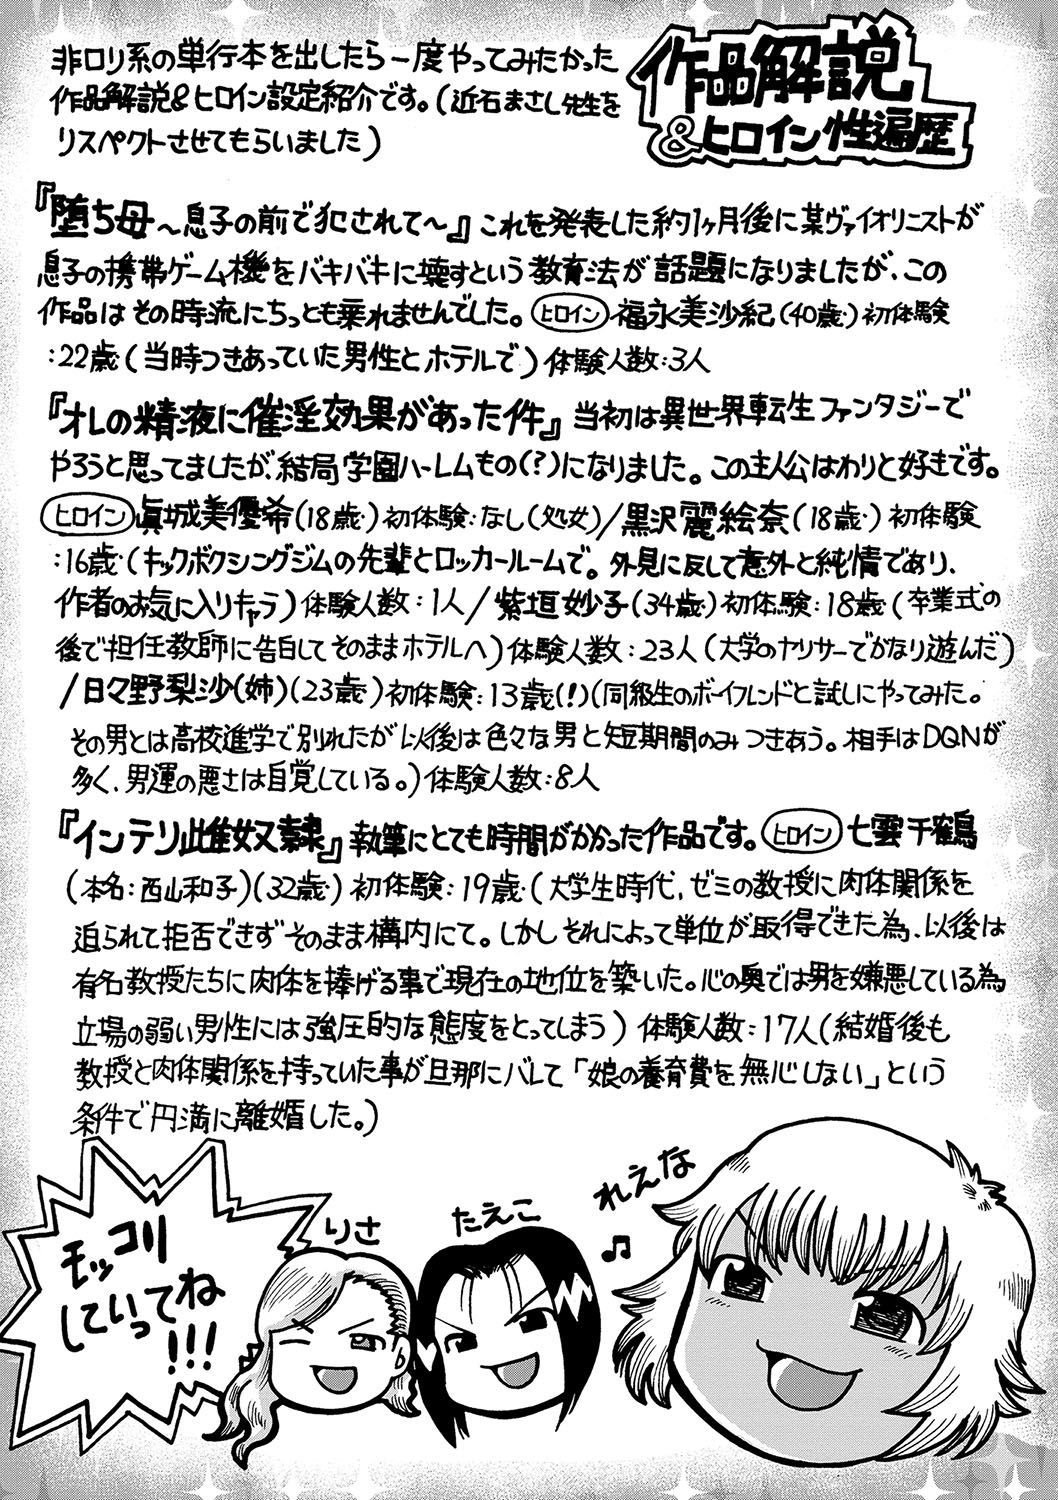 作品解説
&ヒロイン性遍歴
非ロリ系の単行本を出したら一度やってみたかった
作品解説&ヒロイン設定紹介です。(近石まさし先生を
リスペクトさせてもらいました)
『堕ち母〜息子の前で犯されて〜』これを発表した約1ヶ月後に某ヴァイオリニストが
息子の携帯ゲーム機をバキバキに壊すという教育法が話題になりましたが、この
作品はその時流にちっとも乗れませんでした。ヒロイン 福永美沙紀(40歳)初体験
:22歳(当時つきあっていた男性とホテルで)体験人数:3人
『オレの精液に催淫効果があった件』当初は異世界転生ファンタジーで
やろうと思ってましたが、結局学園ハーレムもの(?)になりました。この主人公はわりと好きです。
ヒロイン 眞城美優希(18歳)初体験:なし(処女)/黒沢麗絵奈(18歳)初体験
:16歳(キックボクシングジムの先輩とロッカールームで。外見に反して意外と純情であり、
作者のお気に入りキャラ)体験人数:1人/紫垣妙子(34歳)初体験:18歳(卒業式の
後で担任教師に告白してそのままホテルへ)体験人数:23人(大学のヤリサーでかなり遊んだ)
/日々野梨沙(姉)(23歳)初体験:13歳(!)(同級生のボーイフレンドと試しにやってみた。
その男とは高校進学で別れたが以後は色々な男と短期間のみつきあう。相手はDQNが
多く、男運の悪さは自覚している。)体験人数:8人
『インテリ雌奴隷』執筆にとても時間がかかった作品です。ヒロイン 七雲千鶴
(本名:西山和子)(32歳)初体験:19歳(大学生時代、ゼミの教授に肉体関係を
迫られて拒否できずそのまま構内にて。しかしそれによって単位が取得できた為、以後は
有名教授たちに肉体を捧げる事で現在の地位を築いた。心の奥では男を嫌悪している為、
立場の弱い男性には強圧的な態度をとってしまう)体験人数:17人(結婚後も
教授と肉体関係を持っていた事が旦那にバレて「娘の養育費を無心しない」という
条件で円満に離婚した。)
モッコリ
していってね
!!!
りさ
たえこ
れえな
♫